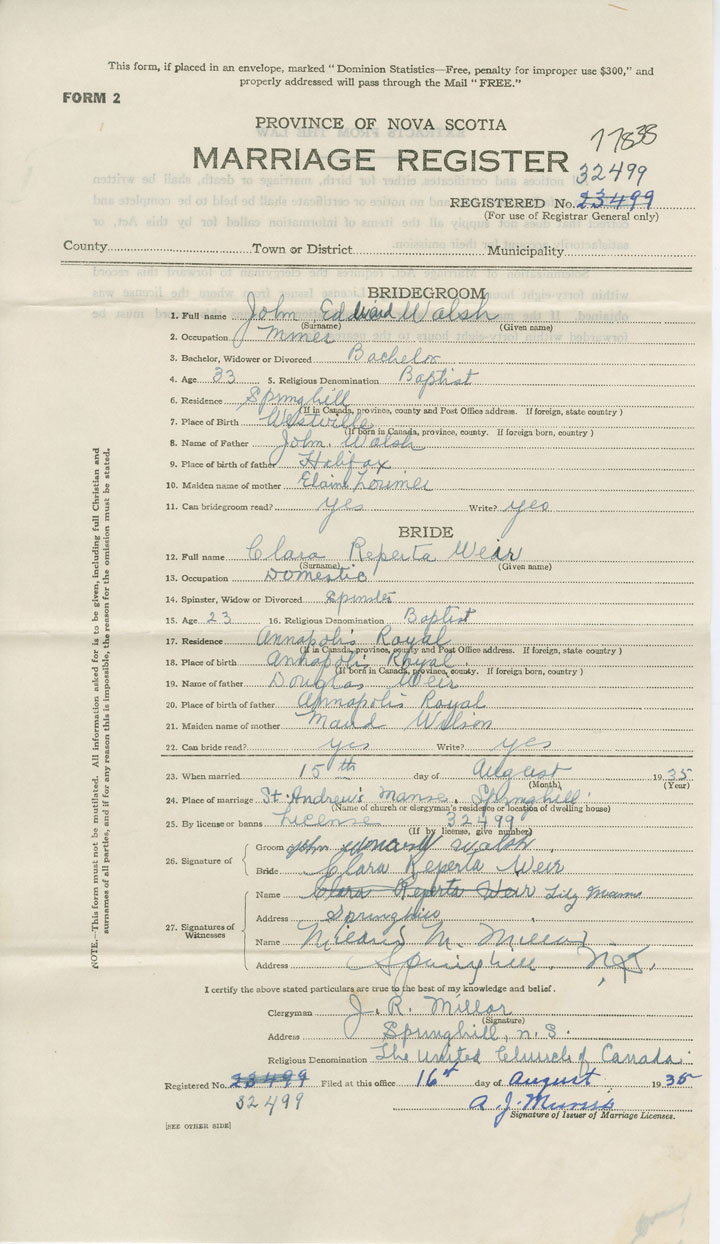 This form, if placed in an envelope, marked "Dominion Statistics—Free, penalty for improper use $300," and
properly addressed will pass through the Mail "FREE."
FORM 2
PROVINCE OF NOVA SCOTIA
77838
MARRIAGE REGISTER
32499
REGISTERED No. 23499
(For use of Registrar General only)
County Town or District Municipality
BRIDEGROOM
1. Full name John Edward Walsh
(Surname) (Given name)
2. Occupation Miner
3. Bachelor, Widower or Divorced Bachelor
4. Age 33 5. Religious Denomination Baptist
6. Residence Springhill
(If in Canada, province, county and Post Office address. If foreign, state country)
7. Place of Birth Westville
(If born in Canada, province, county. If foreign born, country)
8. Name of Father John Walsh
9. Place of birth of father Halifax
10. Maiden name of mother Elaine
11. Can bridegroom read? yes Write? yes
BRIDE
12. Full name Clara Reperta Weir
(Surname) (Given name)
13. Occupation Domestic
14. Spinster, Widow or Divorced Spinster
15. Age 23 16. Religious Denomination Baptist
17. Residence Annapolis Royal
(If in Canada, province, county and Post Office address. If foreign, state country)
18. Place of birth Annapolis Royal.
(If born in Canada, province, county. If foreign born, country)
19. Name of father Douglas Weir
20. Place of birth of father Annapolis Royal
21. Maiden name of mother Maud Wilson
22. Can bride read? yes Write? yes
23. When married 15th day of August 1935
(Month) (Year)
24. Place of marriage St. Andrew's Manse, Springhill
(Name of church or clergyman's residence or location of dwelling house)
25. By license or banns License 32499
(If by license, give number)
26. Signature of Groom John Edward Walsh
Bride Clara Reperta Weir
27. Signatures of Witnesses Name Clara Reperta Weir Lily
Address Springhill
Name M. Millar
Address Springhill, N.S.
I certify the above stated particulars are true to the best of my knowledge and belief.
Clergyman J. R. Millar
(Signature)
Address Springhill, N.S.
Religious Denomination The United Church of Canada.
Registered No. 23499 Filed at this office 16th day of August 1935
32499
A. J.
Signature of Issuer of Marriage Licenses.
[SEE OTHER SIDE]
NOTE.—This form must not be mutilated. All information asked for is to be given, including full Christian and
surnames of all parties, and if for any reason this is impossible, the reason for the omission must be stated.